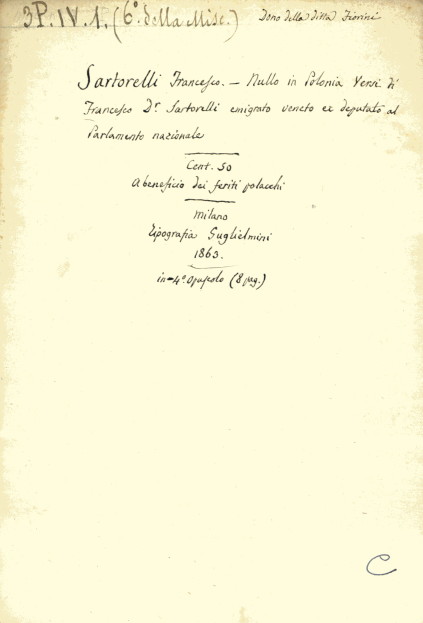 3P.IV.1.(6° della Misc.) Dono della ditta Fiorini
Sartorelli Francesco. — Nullo in Polonia Versi di
Francesco Dr Sartorelli emigrato veneto ex deputato al
Parlamento nazionale
Cent. 50
A beneficio dei feriti polacchi
Milano
Tipografia Guglielmini
1863.
in-4° Opuscolo (8 pag.)
C